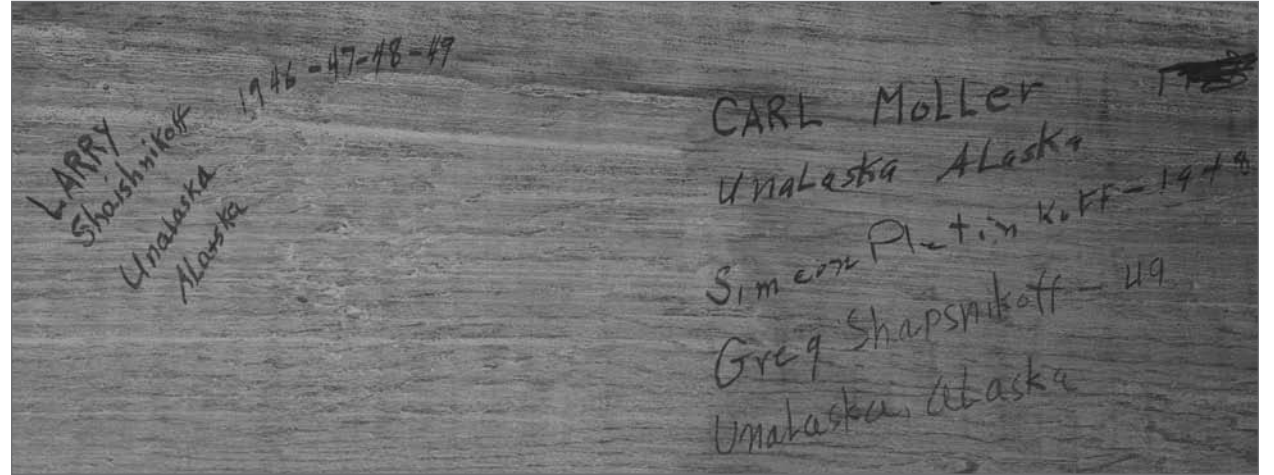 LARRY
Shaishnikoff
Unalaska
Alaska
1946-47-48-49
CARL MOLLER
Unalaska Alaska
Simeon Pletinkoff-1948
Greg Shapsnikoff-49
Unalaska, alaska